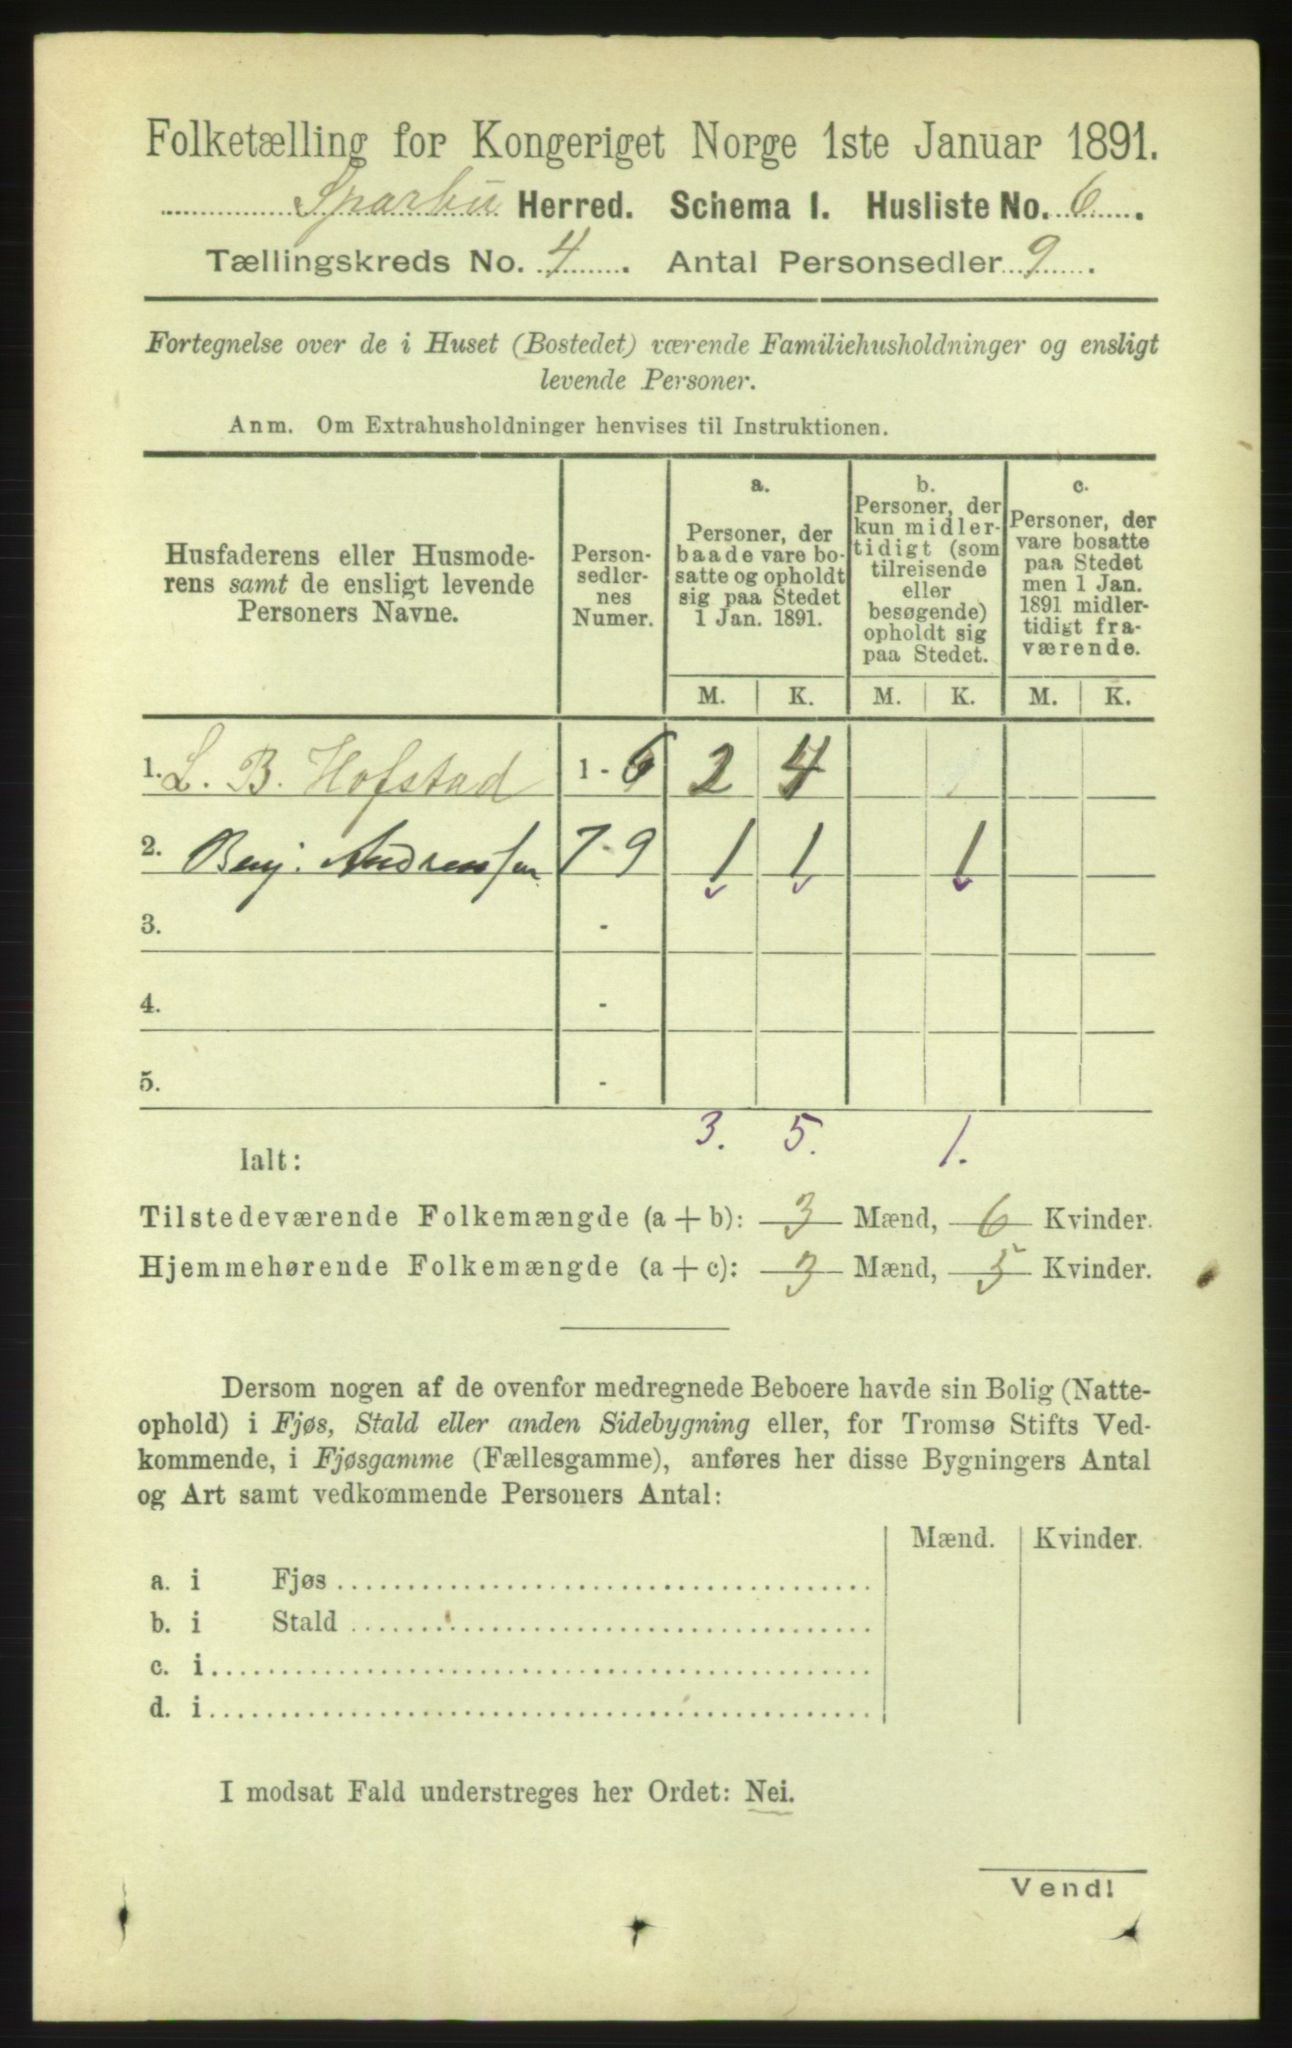 Folketælling for Kongeriget Norge 1ste Januar 1891.
Sparbu Herred. Schema I. Husliste No. 6.
Tællingskreds No. 4. Antal Personsedler 9.
Fortegnelse over de i Huset (Bostedet) værende Familiehusholdninger og ensligt
levende Personer.
Anm. Om Extrahusholdninger henvises til Instruktionen.
Husfaderens eller Husmode-
rens samt de ensligt levende
Personers Navne.
Person-
sedler-
nes
Numer.
a.
Personer, der
baade vare bo-
satte og opholdt
sig paa Stedet
1 Jan. 1891.
b.
Personer, der
kun midler-
tidigt (som
tilreisende
eller
besøgende)
opholdt sig
paa Stedet.
c.
Personer, der
vare bosatte
paa Stedet
men 1 Jan.
1891 midler-
tidigt fra-
værende.
M. K. M. K. M. K.
1. L. B. Hofstad 1 - 6 2 4
2. Benj. Andreassen 7 - 9 1 1 1
3. -
4. -
5. -
3. 5. 1.
Ialt:
Tilstedeværende Folkemængde (a + b): 3 Mænd, 6 Kvinder.
Hjemmehørende Folkemængde (a + c): 3 Mænd, 5 Kvinder.
Dersom nogen af de ovenfor medregnede Beboere havde sin Bolig (Natte-
ophold) i Fjøs, Stald eller anden Sidebygning eller, for Tromsø Stifts Ved-
kommende, i Fjøsgamme (Fællesgamme), anføres her disse Bygningers Antal
og Art samt vedkommende Personers Antal:
Mænd. Kvinder.
a. i Fjøs
b. i Stald
c. i
d. i
I modsat Fald understreges her Ordet: Nei.
Vend!